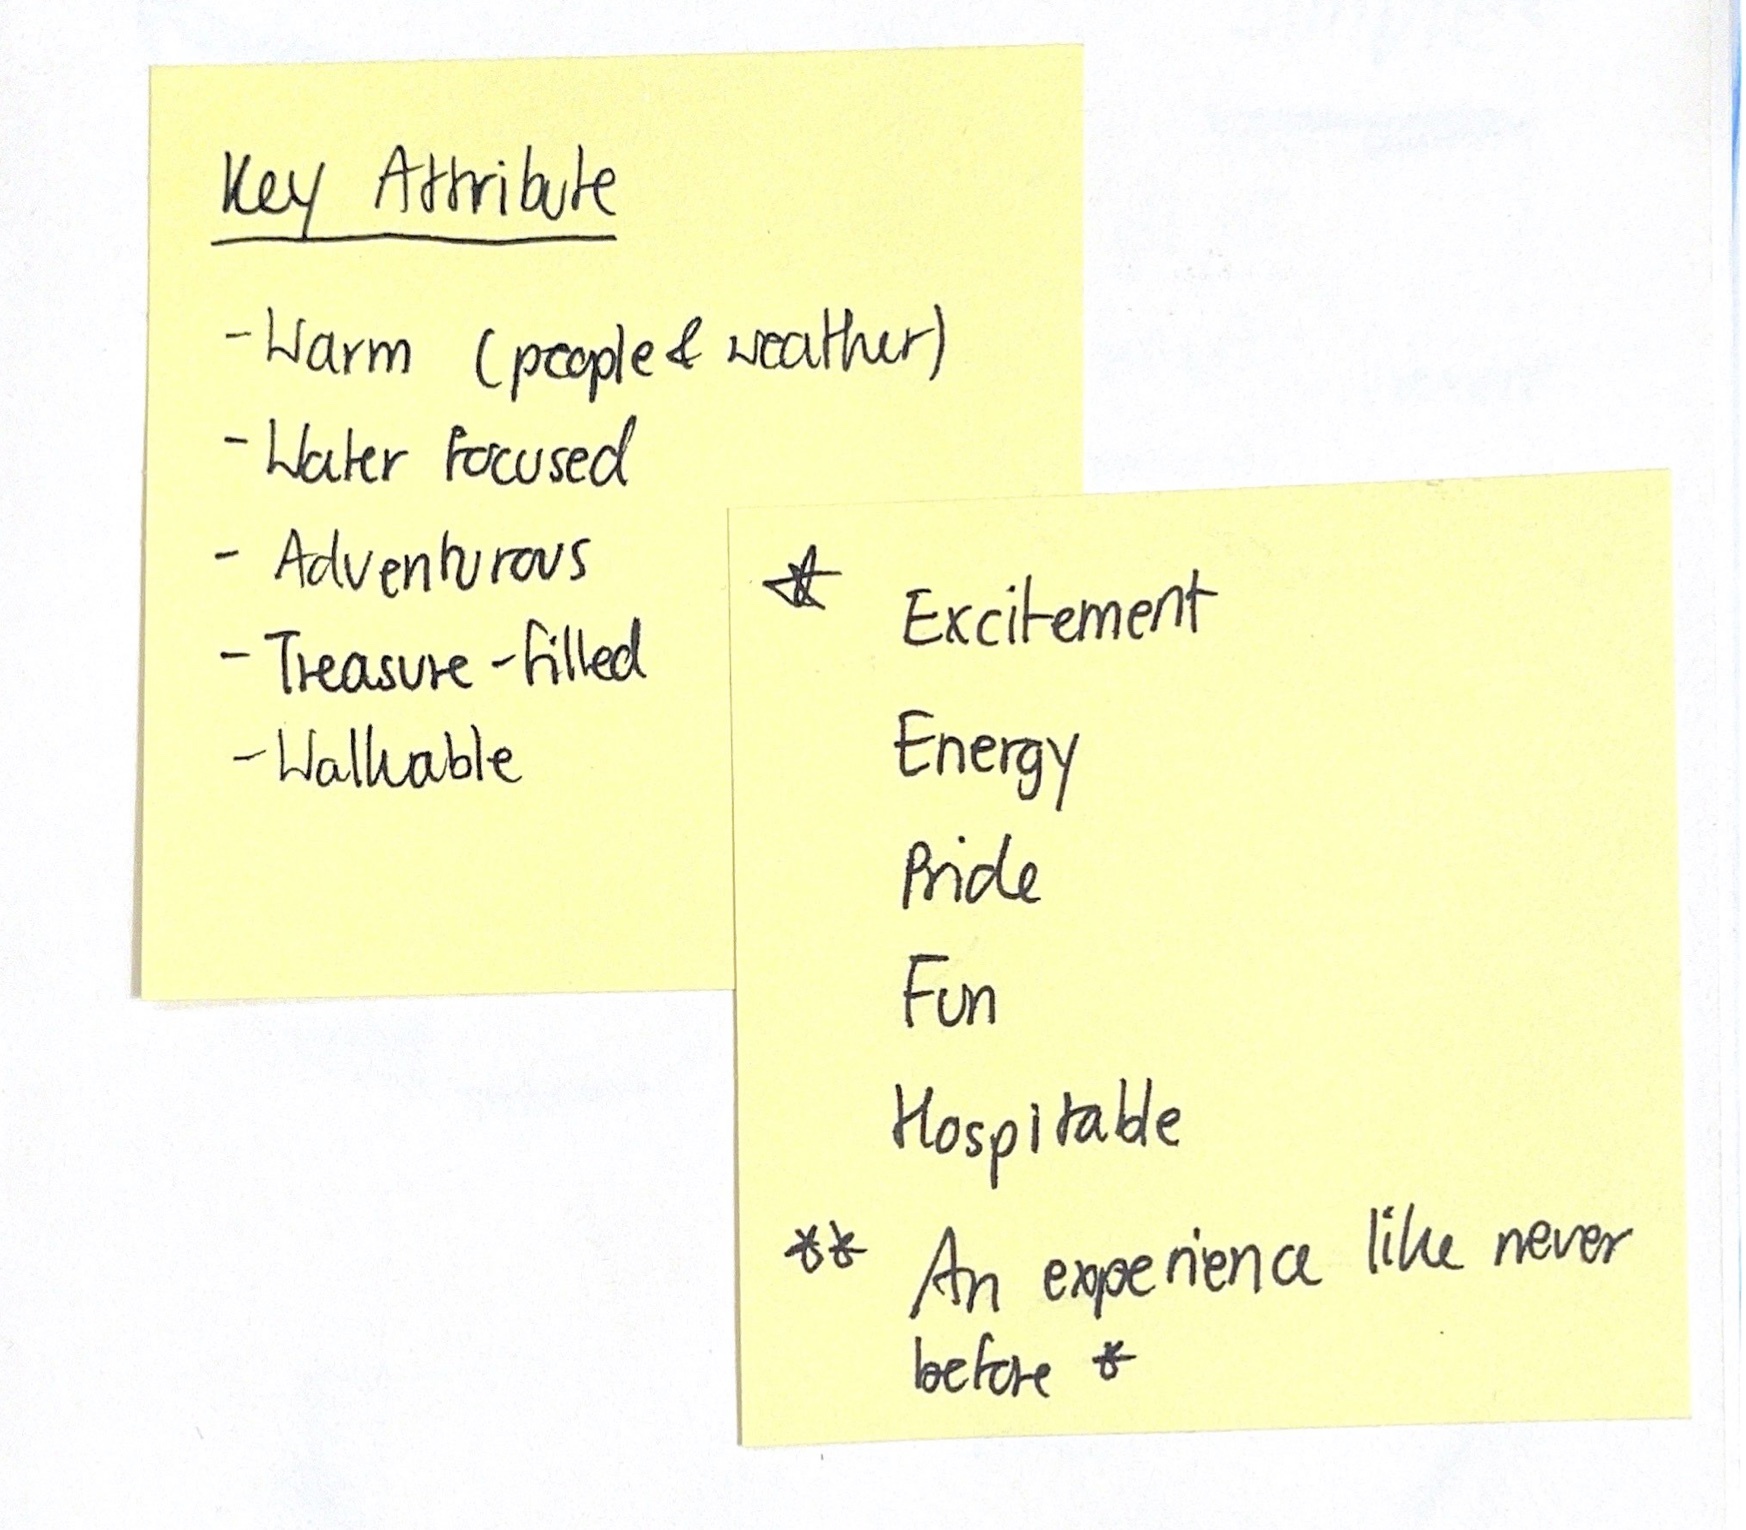 Key Attribute
- Warm (people & weather)
- Water focused
- Adventurous
- Treasure-filled
- Walkable
☆ Excitement
Energy
Pride
Fun
Hospitable
** An experience like never
before *